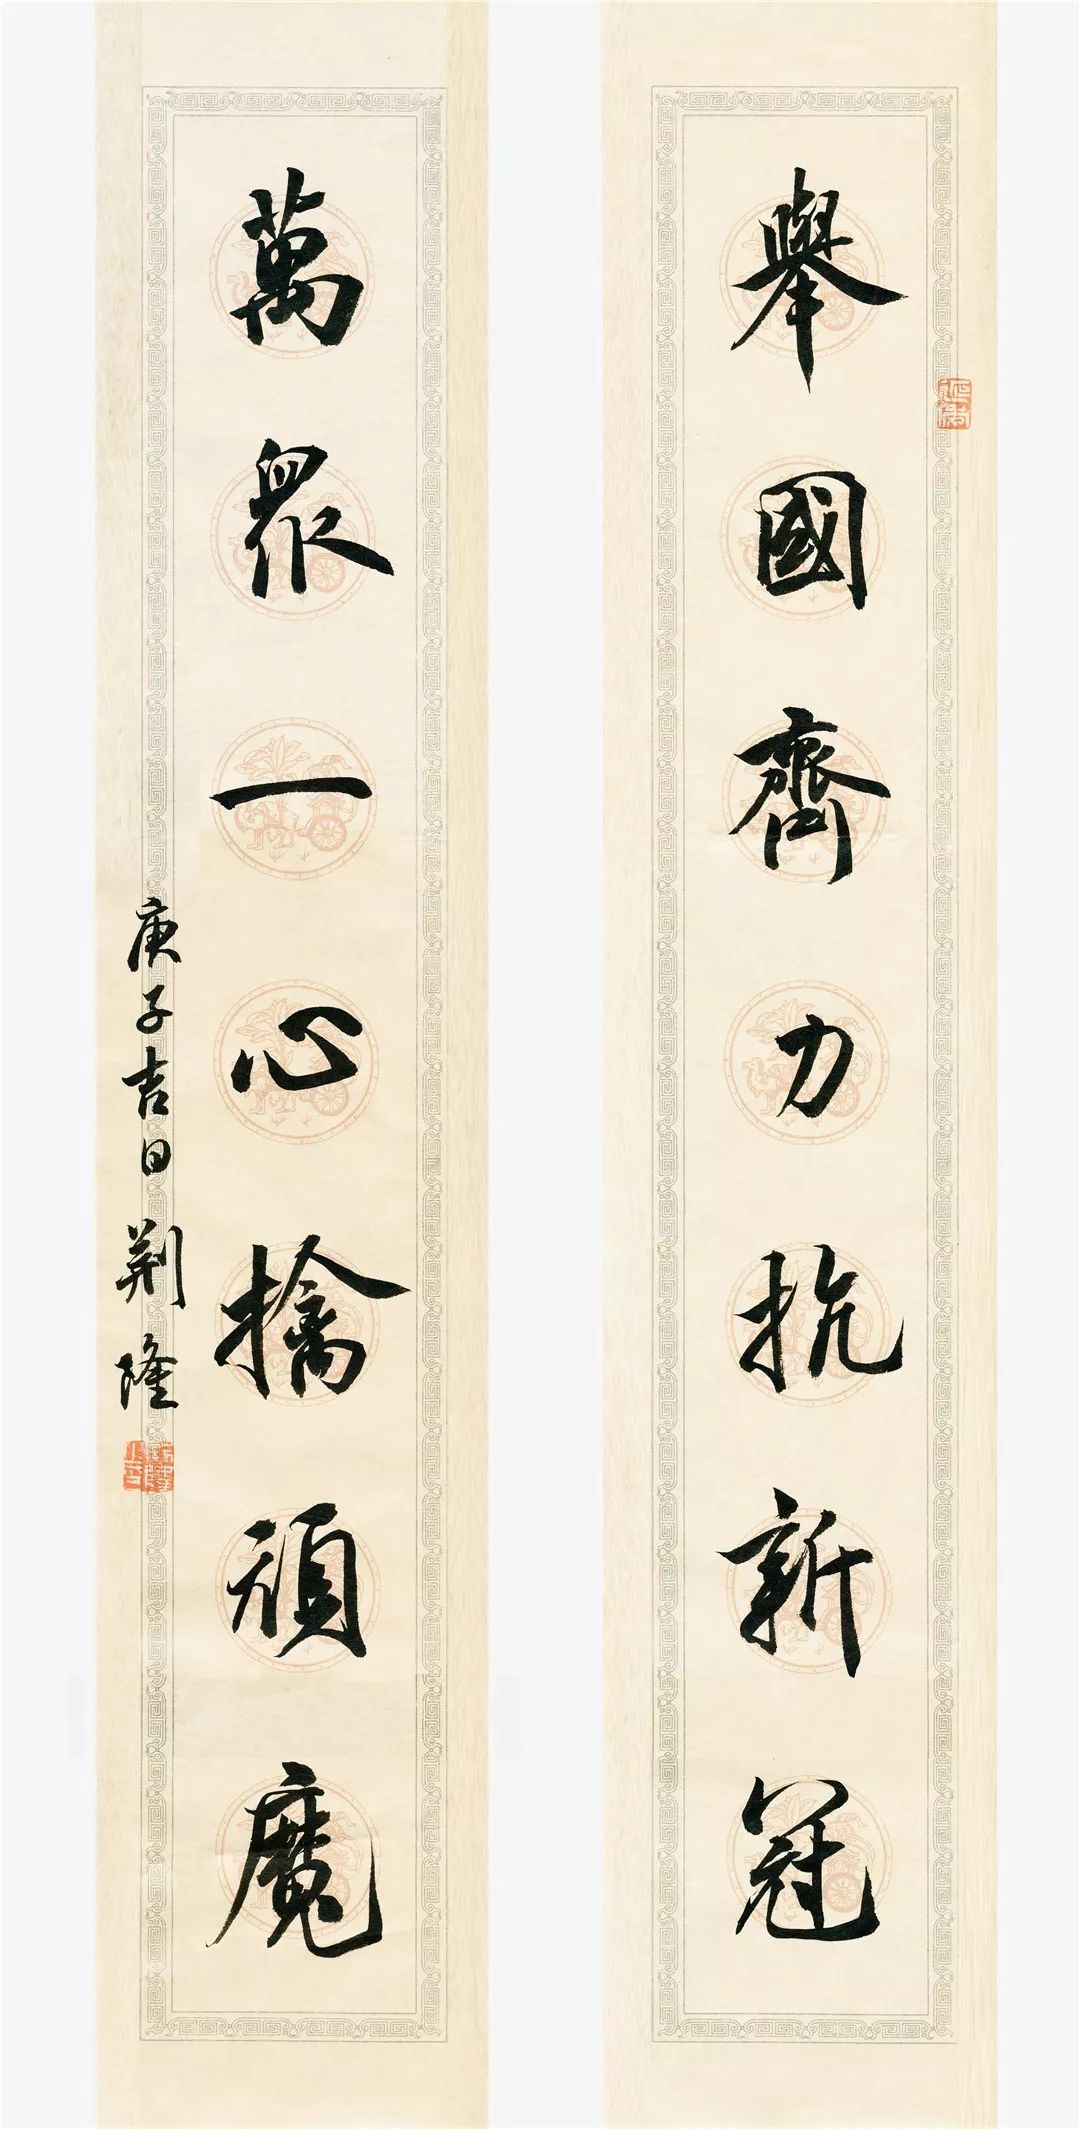 舉國齊力抗新冠
萬衆一心擒頑魔
庚子吉日 荆隆